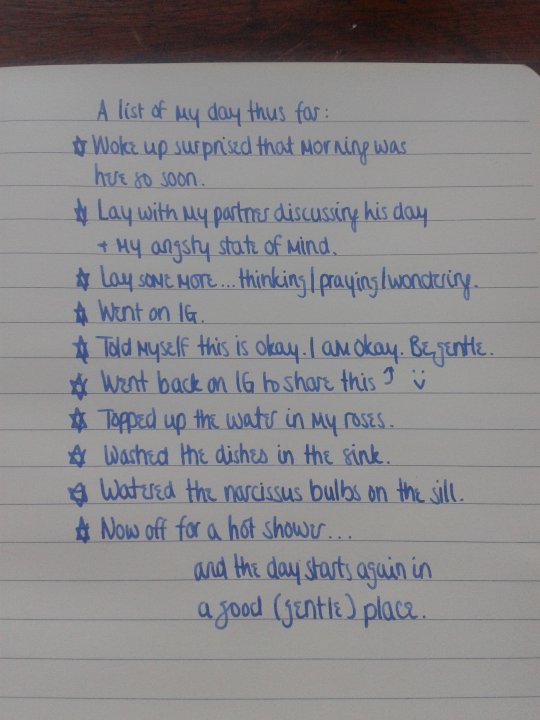 A list of my day thus far:
☆ Woke up surprised that morning was
here so soon.
☆ Lay with my partner discussing his day
+ my angsty state of mind.
☆ Lay some more... thinking/praying/wondering.
☆ Went on IG.
☆ Told myself this is okay. I am okay. Be gentle.
☆ Went back on IG to share this ⤴ :)
☆ Topped up the water in my roses.
☆ Washed the dishes in the sink.
☆ Watered the narcissus bulbs on the sill.
☆ Now off for a hot shower...
and the day starts again in
a good (gentle) place.